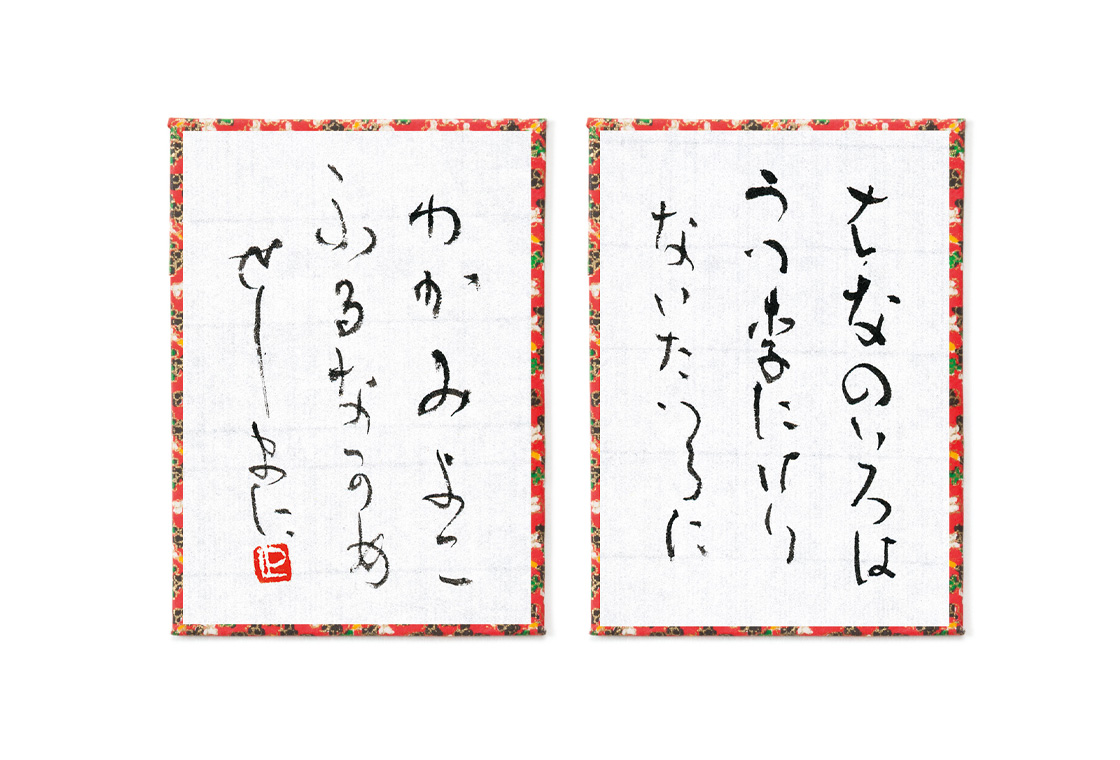 はなのいろは
うつ李にけり
ないたつらに
わかみよに
ふるなかめ
せしまに